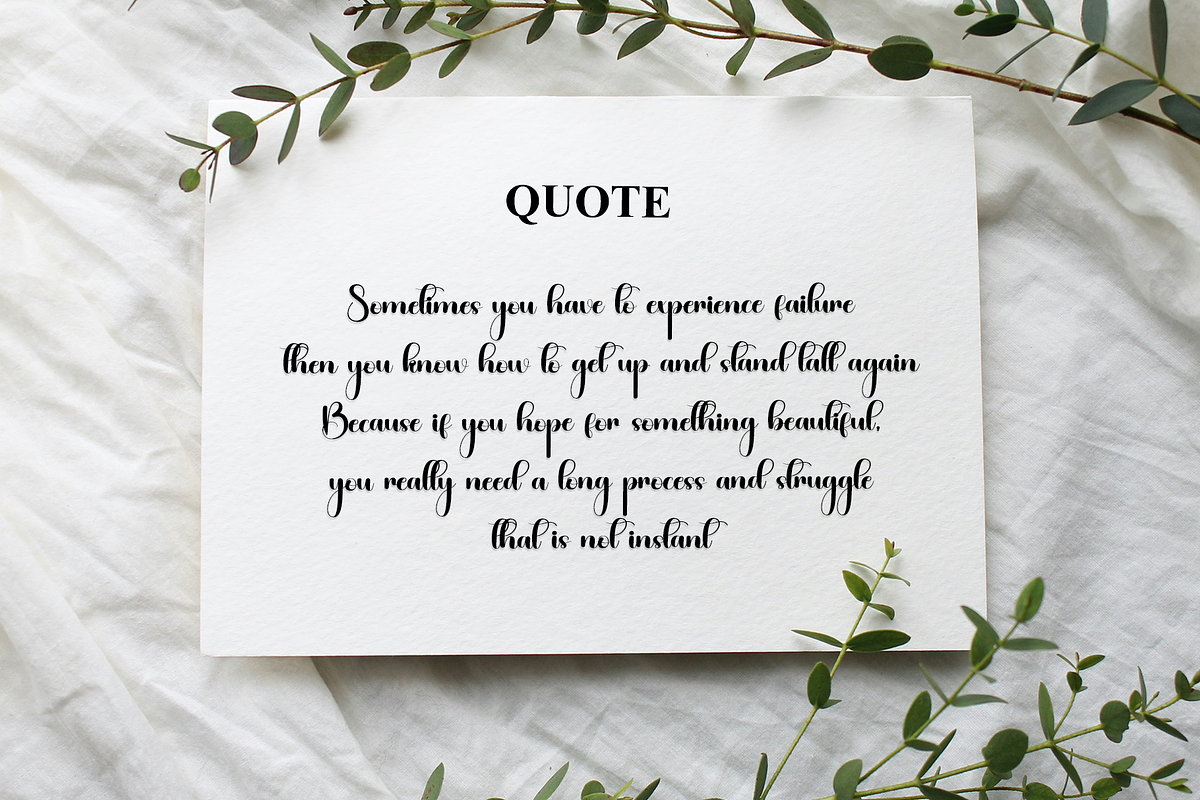 QUOTE
Sometimes you have to experience failure
then you know how to get up and stand tall again
Because if you hope for something beautiful,
you really need a long process and struggle
that is not instant